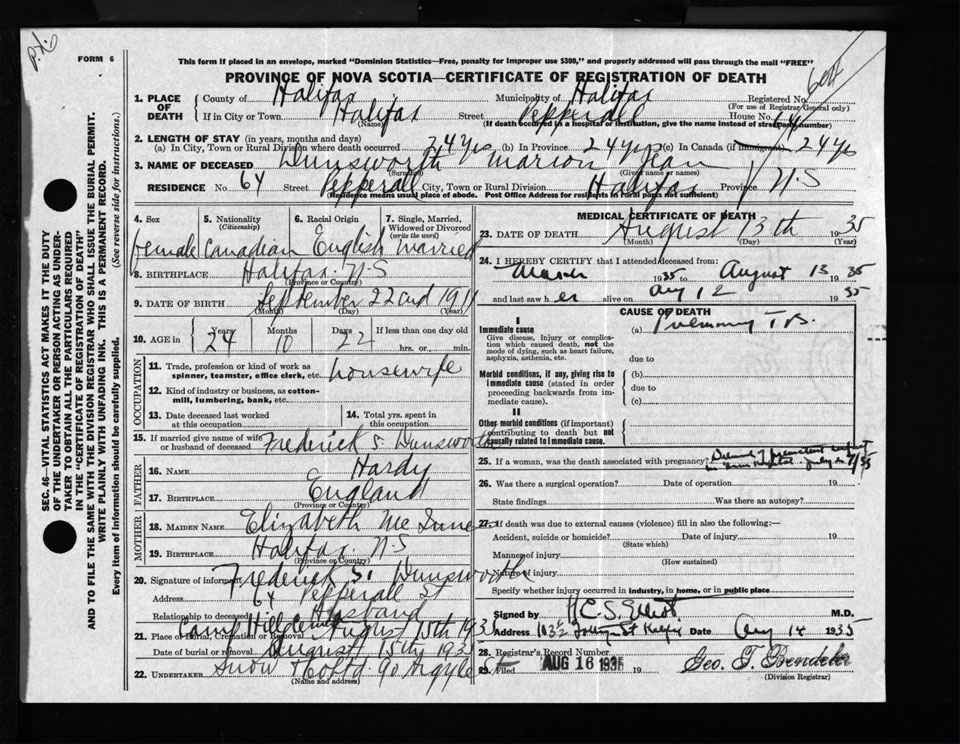 FORM 6
This form if placed in an envelope, marked "Dominion Statistics—Free, penalty for improper use $300," and properly addressed will pass through the mail "FREE"
PROVINCE OF NOVA SCOTIA—CERTIFICATE OF REGISTRATION OF DEATH
SEC. 46—VITAL STATISTICS ACT MAKES IT THE DUTY
OF THE UNDERTAKER OR PERSON ACTING AS UNDER-
TAKER TO OBTAIN ALL THE PARTICULARS REQUIRED
IN THE "CERTIFICATE OF REGISTRATION OF DEATH"
AND TO FILE THE SAME WITH THE DIVISION REGISTRAR WHO SHALL ISSUE THE BURIAL PERMIT.
WRITE PLAINLY WITH UNFADING INK. THIS IS A PERMANENT RECORD.
Every item of information should be carefully supplied. (See reverse side for instructions.)
1. PLACE OF DEATH
County of Halifax Municipality of Halifax Registered No.
(For use of Registrar General only)
If in City or Town Halifax Street Pepperall House No. 64
(Name) (If death occurred in a hospital or institution, give the name instead of street and number)
2. LENGTH OF STAY (in years, months and days)
(a) In City, Town or Rural Division where death occurred 24 yrs (b) In Province 24 yrs (c) In Canada (if immigrant) 24 yrs
3. NAME OF DECEASED Dunsworth Marion Jean
(Surname) (Given name or names)
RESIDENCE No. 64 Street Pepperall City, Town or Rural Division Halifax Province N.S
(Residence means usual place of abode. Post Office Address for residents in rural parts not sufficient)
4. Sex 5. Nationality (Citizenship) 6. Racial Origin 7. Single, Married, Widowed or Divorced (write the word)
female Canadian English married
8. BIRTHPLACE Halifax. N.S
(Province or Country)
9. DATE OF BIRTH September 22nd 1911
(Month) (Day) (Year)
10. AGE in Years 24 Months 10 Days 22 If less than one day old
hrs. or min.
OCCUPATION
11. Trade, profession or kind of work as spinner, teamster, office clerk, etc. housewife
12. Kind of industry or business, as cotton-mill, lumbering, bank, etc.
13. Date deceased last worked at this occupation
14. Total yrs. spent in this occupation
15. If married give name of wife or husband of deceased Frederick S. Dunsworth
FATHER
16. NAME Hardy
17. BIRTHPLACE England
(Province or Country)
MOTHER
18. MAIDEN NAME Elizabeth Mc Innes
19. BIRTHPLACE Halifax. N.S
(Province or Country)
20. Signature of informant Frederick S. Dunsworth
Address 64 Pepperall St
Relationship to deceased Husband
21. Place of Burial, Cremation or Removal Camp Hill August 15th 193
Date of burial or removal August 15th 193
22. UNDERTAKER Snow & Co Ltd 90 Argyle
(Name and address)
MEDICAL CERTIFICATE OF DEATH
23. DATE OF DEATH August 13th 1935
(Month) (Day) (Year)
24. I HEREBY CERTIFY that I attended deceased from:
March 1935 to August 13 1935
and last saw her alive on Aug 12 1935
CAUSE OF DEATH
I
Immediate cause (a) Pulmonary T.B.
Give disease, injury or complication which caused death, not the mode of dying, such as heart failure, asphyxia, asthenia, etc.
due to
Morbid conditions, if any, giving rise to immediate cause (stated in order proceeding backwards from immediate cause). (b)
due to
(c)
II
Other morbid conditions (if important) contributing to death but not causally related to immediate cause.
25. If a woman, was the death associated with pregnancy? premature infant
26. Was there a surgical operation? Date of operation 19
State findings Was there an autopsy?
27. If death was due to external causes (violence) fill in also the following:—
Accident, suicide or homicide? Date of injury 19
(State which)
Manner of injury
(How sustained)
Nature of injury
Specify whether injury occurred in industry, in home, or in public place
Signed by C. S. M.D.
Address Date Aug 14 1935
28. Registrar's Record Number
29. Filed AUG 16 1935 19 Geo. T.
(Division Registrar)